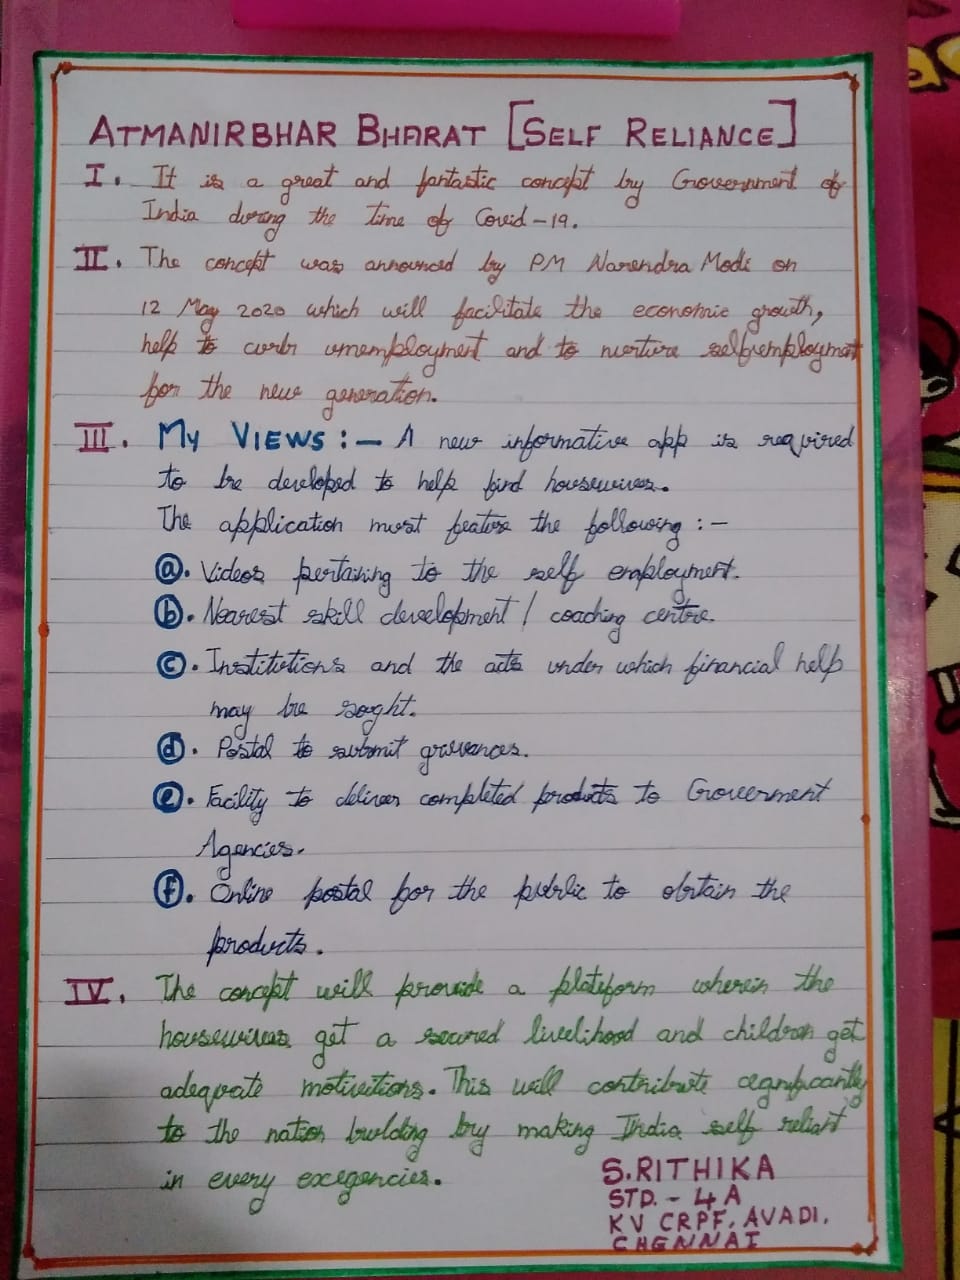 ATMANIRBHAR BHARAT [SELF RELIANCE]
I. It is a great and fantastic concept by Government of
India during the time of Covid-19.
II. The concept was announced by PM Narendra Modi on
12 May 2020 which will facilitate the economic growth,
help to curb umemployment and to nurture selfremployment
for the new generation.
III. MY VIEWS :- A new informative app is required
to be developed to help find housewives.
The application must feature the following :-
a. Videos pertaining to the self employment.
b. Nearest skill development / coaching centre.
c. Institutions and the acts under which financial help
may be soght.
d. Postal to submit grievances.
e. Facility to deliver completed products to Goverment
Agencies.
f. Online postal for the public to obtain the
products.
IV. The concept will provide a plateform wherein the
housewives get a secured livelihood and children get
adequate motivations. This will contribute cignificantly
to the nation building by making India self reliant
in every exegencies.
S.RITHIKA
STD. - 4 A
KV CRPF, AVADI,
CHENNAI